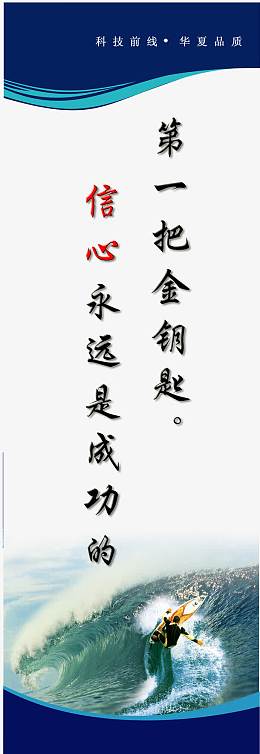 科技前线•华夏品质
信心永远是成功的
第一把金钥匙。